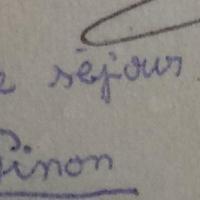 e séjour.
Pinon